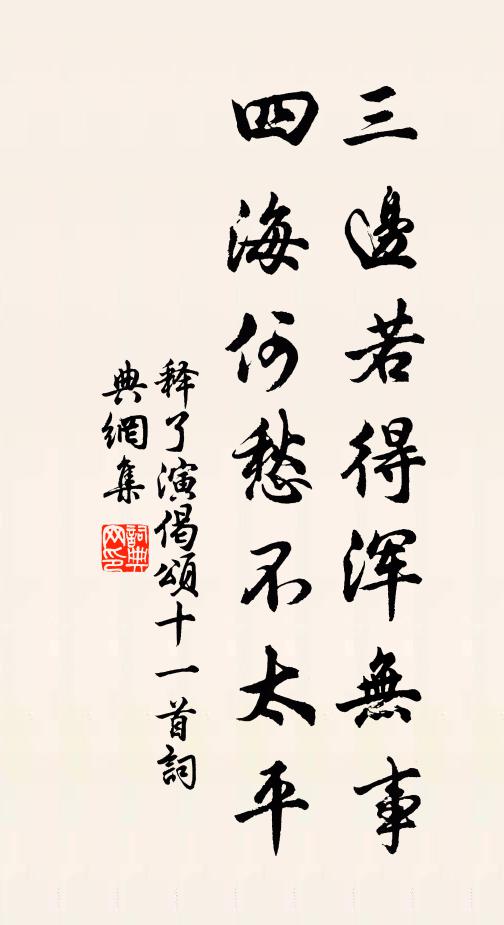 三邊若得渾無事
四海何愁不太平
释了演偈頌十一首詞
典網集
詞典
网印